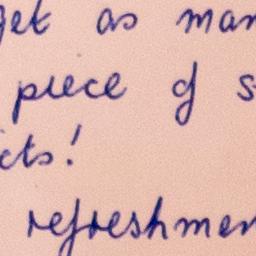 get as man
piece of s
cts!
refreshmen